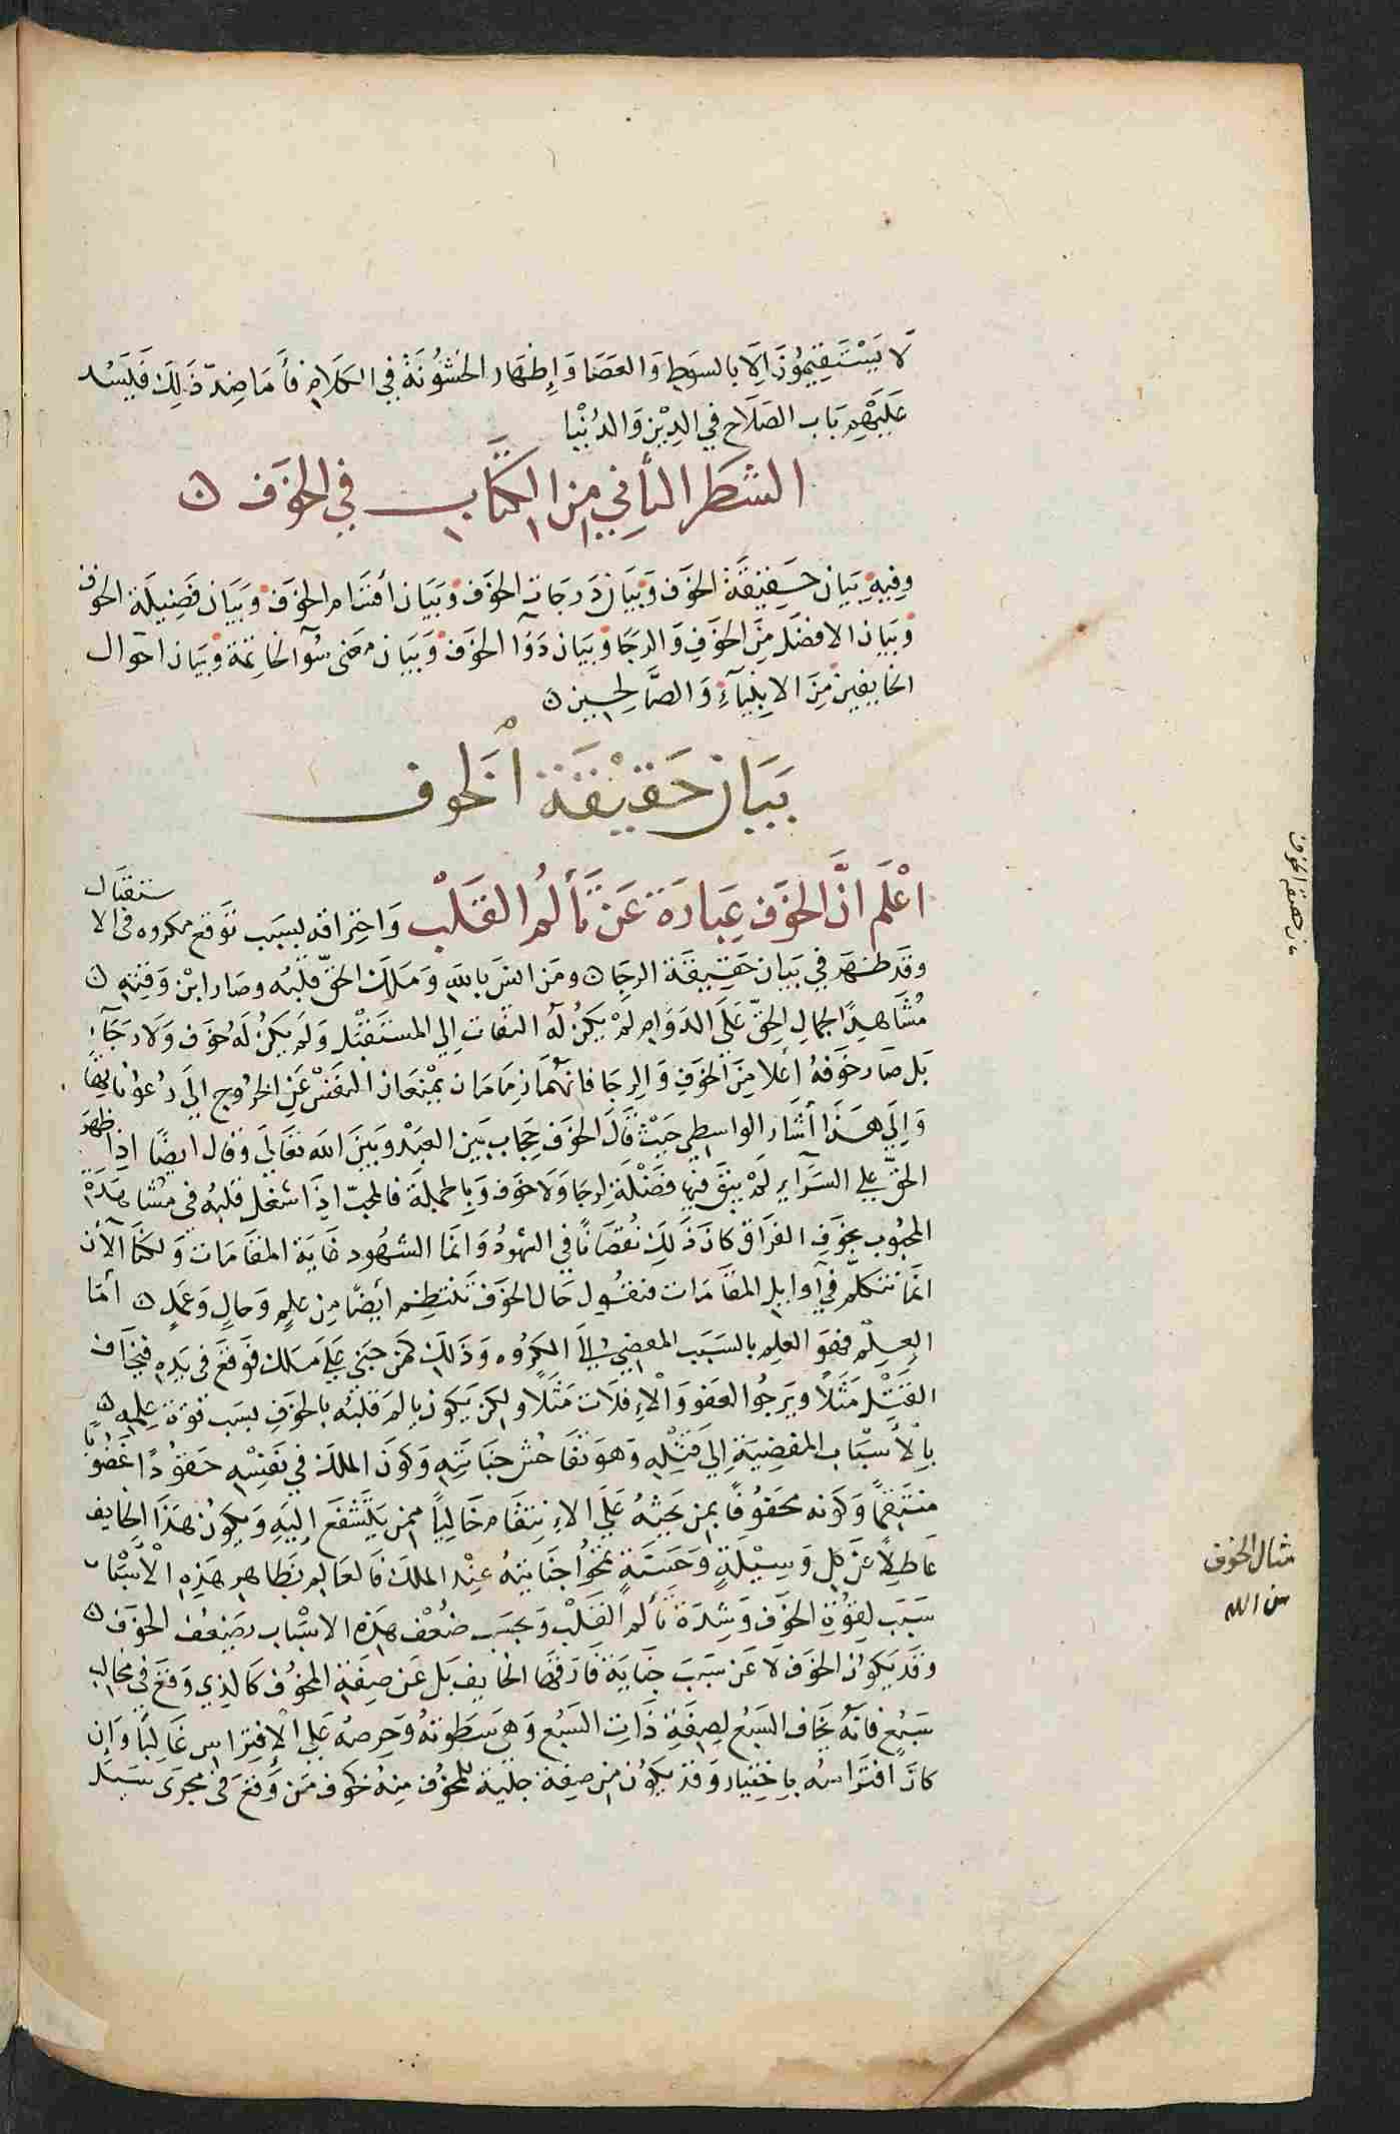 لا يَسْتَقِيمُونَ الا بالسَوطِ وَالعَصَا وَإِظهَار الخشُونَة في الكلام فأمَا ضِدّ ذَلِكَ فَيَسُد
عَلَيْهِم بَاب الصَلَاح في الدِيْن وَالدُنْيا
الشطر الثاني من الكتاب في الخوف ن
وفيهِ بَيَان حَقِيقَة الخوَف وَبَيَان دَرجَات الخوَف وَبَيَان أقسَام الخوَف وَبَيَان فَضِيلَة الخوف
وبيان الافضَل مِنَ الخوَفِ وَالرجَا وبيَان دَوَآ الخوَف وَبَيَان معَنى سُوٓ الخاتِمَة وبيَان احوَال
الخايفين مِنَ الانبِيآءِ وَالصَّالحين ن
بَيَان حَقِيْقَة الخَوف
اعْلَم انَّ الخوَف عِبَارَة عَن تَأَلُم القَلْب وَاحتِراقه بسَبَب تَوَقع مكروه في الا
ستقبَال
وقَد ظَهَر في بَيان حَقِيقَة الرجَا ن ومَن انسَ بالله وَمَلَك الحَقّ قلبُه وصَار ابْن وَقتِه ن
مُشَاهِدًا لجمال الحَقّ عَلَى الدَوَام لمْ يَكنْ لَهُ التفات إلي المستَقبَل وَلَم يَكنْ لَهُ خوَف وَلَا رَجَآء
بَل صَار خَوَفهُ أعلا مِنَ الخوَفِ وَالرجَا فانهُمَا زِمَامَان يمْنعَان النفَسْ عَنِ الخرُوج الَى رُعوُنَاتِهَا
وَإِلَي هَذَا أشَار الواسِطي حَيْث قَالَ الخوَف حِجَاب بَين العَبْد وَبَينَ الله تعَالَى وَقال ايضًا اذا ظهَر
الحَقّ علي السَرَآير لَمْ يبْقَ فيهَا فَضْلَة لرجَا وَلَا خوَف وَبِالجملَة فالمحِبّ اذَا شغَل قَلبُه في مشاهَدَة
المحبُوب بخوَفِ الفرَاق كانَ ذَلِكَ نُقصَانًا في الشهُودُ وَانمَا الشهُود غايَة المقَامَات وَلكنَّا الآن
انمَا نتَكلّم في أوَايل المقَامَات فنقُول حَال الخوَف تَنتظِم أيضًا مِن علِم وَحَالٍ وَعَمَلٍ ن أمّا
العِلْم فهوَ العلِم بالسَبَب المفضِي إلَى المكرُوه وَذَلِكَ كمَن جَنَى عَلَى مَلك فوَقَعَ في يَدِه فيخَاف
القَتْل مَثَلًا ويَرجُوا العَفو وَالْاِفلَات مَثَلًا ولكِن يَكوُن تالمُ قَلبُه بالخوَفِ بسَبب قوة علمه
بالْأَسْبَاب المفضِيَة اِلي قَتْلِه وَهوَ تَفَاحُش جنَايَتِه وَكوَن الملك في نَفسِه حَقوُدًا غَضُوبًا
منتَقِمًا وَكَونه محفوُفًا بمَن يَحثهُ عَلَى الاِنتِقَام خَالِيًا ممن يَتشَفعَ إلَيهِ وَيكوُن هَذَا الخايف
عَاطِلاً عَن كلِ وَسِيْلَةٍ وَحَسَنَةٍ تمحوُا جنَايَتهُ عنِد الملك فالعِلم بتظاهرِ هَذِه الْأسْبَاب
سَبَب لقوُةِ الخوَف وَشِدَة تألُم القَلْب وَبحسَب ضُعْف هَذه الاسْبَاب يضعُف الخوَف ن
وقَد يكوُن الخوَف لا عَن سَبَب جنَايَة قارَفَهَا الخايف بَل عَن صِفَة المخوُف كَالذِي وَقعَ في مخالب
سَبُعٍ فانَهُ يَخاف السَبُع لصِفَةِ ذَات السَبُع وَهيَ سَطوَتهُ وَحِرصُه عَلى الاِفترَاسِ غَالبًا وَإن
كانَ افتَرَاسُه بِاختِيار وَقد يكوُن مِن صِفة جِلّية للمخوُف مِنهُ كخوَف مَن وَقعَ في مجرَى سَيل
مثال الخوف
من الله